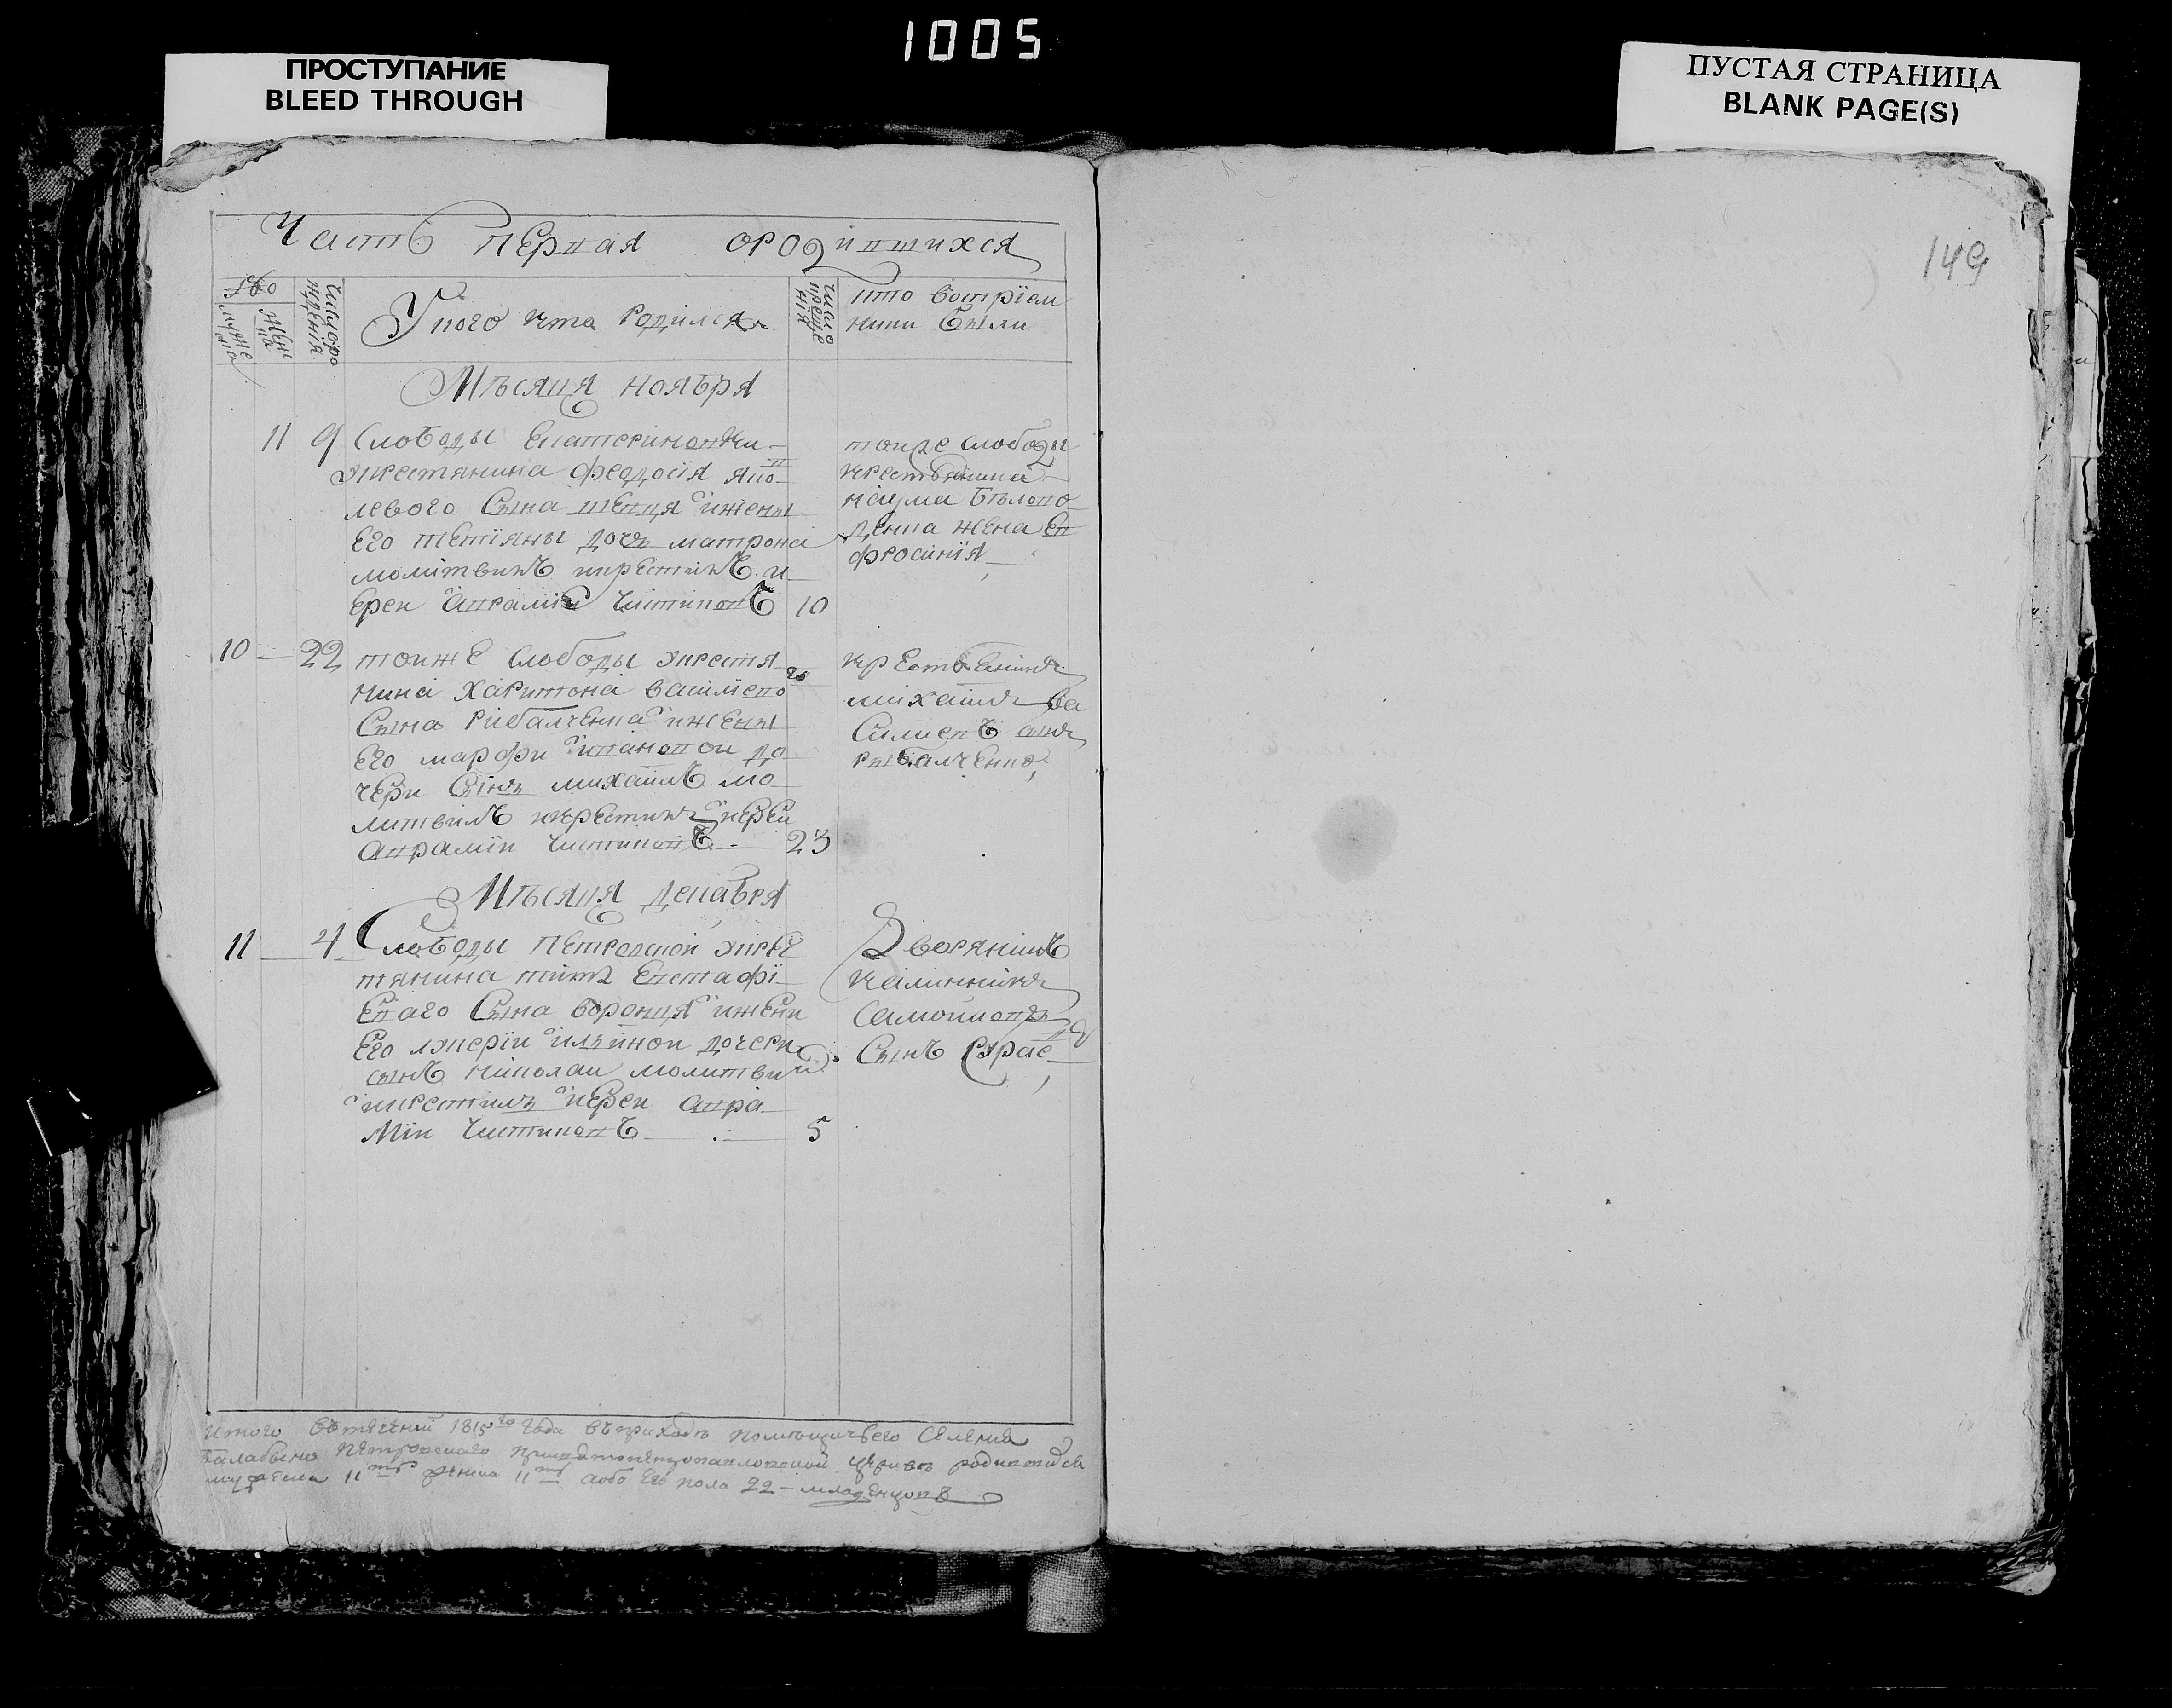 1005
ПРОСТУПАНИЕ
BLEED THROUGH
ПУСТАЯ СТРАНИЦА
BLANK PAGE(S)
149
Часть первая ородившихся
Число рождения
У кого кто родился
Число крещения
кто востріем
ники были
Мѣсяца ноября
11 9 слободы Екатериновки
крестянина феодосія яко
влевого сына швеця и жены
его тетіяны дочь матрона
молитвилъ икрестилъ и
ерей аврамій чистиковъ 10
тоиже слободы
крестьянина
наума бѣлово
денка жена ев
фросинія
10 22 тоиже слободы крестя
нина харитона василіево
сына рибалченка и жены
его марфи ивановои до
чери сынъ михаилъ мо
литвилъ икрестилъ иерей
аврамій чистиковъ 23
крестьянинъ
михаилъ ва
силиевъ сынъ
рыбалченко
Мѣсяца декабря
11 4 Слободы Петровской крес
тянина тита Евстафі
Еваго сына воронця и жени
Его лукерїи ильинои дочери
сынъ николаи молитвил
икрестилъ иерей авра
мій чистиковъ 5
Дворянинъ
калинникъ
самоиловъ
сынъ
итого втеченіи 1815го года въ приходѣ помѣщичьего селения
балабыно Петровскаго церкви родившихся
мужеска 11ть женска 11ть обо его пола 22 младенцовъ